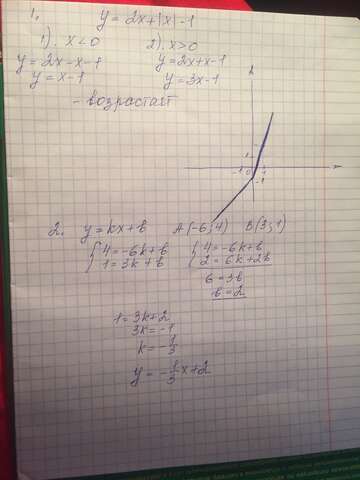 1. y = 2x+|x|-1
1). x<0 2). x>0
y = 2x-x-1 y = 2x+x-1
y = x-1 y = 3x-1
- возрастает
1
-1 0 1
-1
2. y = kx+b A(-6;4) B(3;1)
{4 = -6k+b {4 = -6k+b
1 = 3k+b 2 = 6k+2b
6 = 3b
b = 2
1 = 3k+2
3k = -1
k = -1/3
y = -1/3x+2